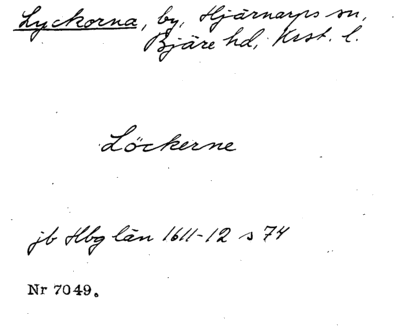 Lyckorna, by, Hjärnarps sn,
Bjäre hd, Krst. l.
Löckerne
jb Hbg län 1611-12 s 74
Nr 7049.